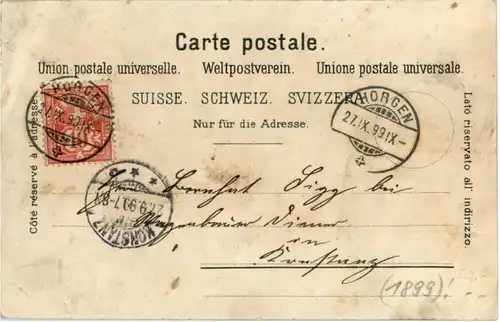 Carte postale.
Union postale universelle. Weltpostverein. Unione postale universale.
SUISSE. SCHWEIZ. SVIZZERA
Nur für die Adresse.
Côté réservé à l'adresse.
Lato riservato all' indirizzo.
HORGEN
HORGEN
27.IX.99.IX-
KONSTANZ
27.9.99.7-8
Herrn Bernhat Sigg bei
Wagenbauer Diener
in
Konstanz
(1899)!